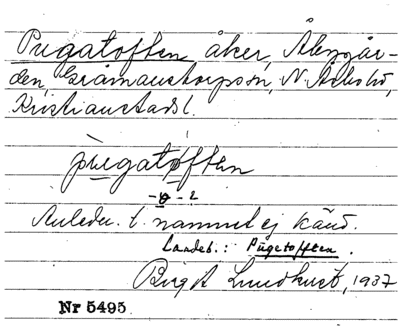 Pugatoften åker, Åbygår-
den, Gråmanstorps sn, N. Åsbo hd,
Kristianstads l.
pùgatòften
-ø- 2
Anledn. t. namnet ej känd.
Landeb.: Pugetofften.
Birgit Lundkvist, 1937
Nr 5495